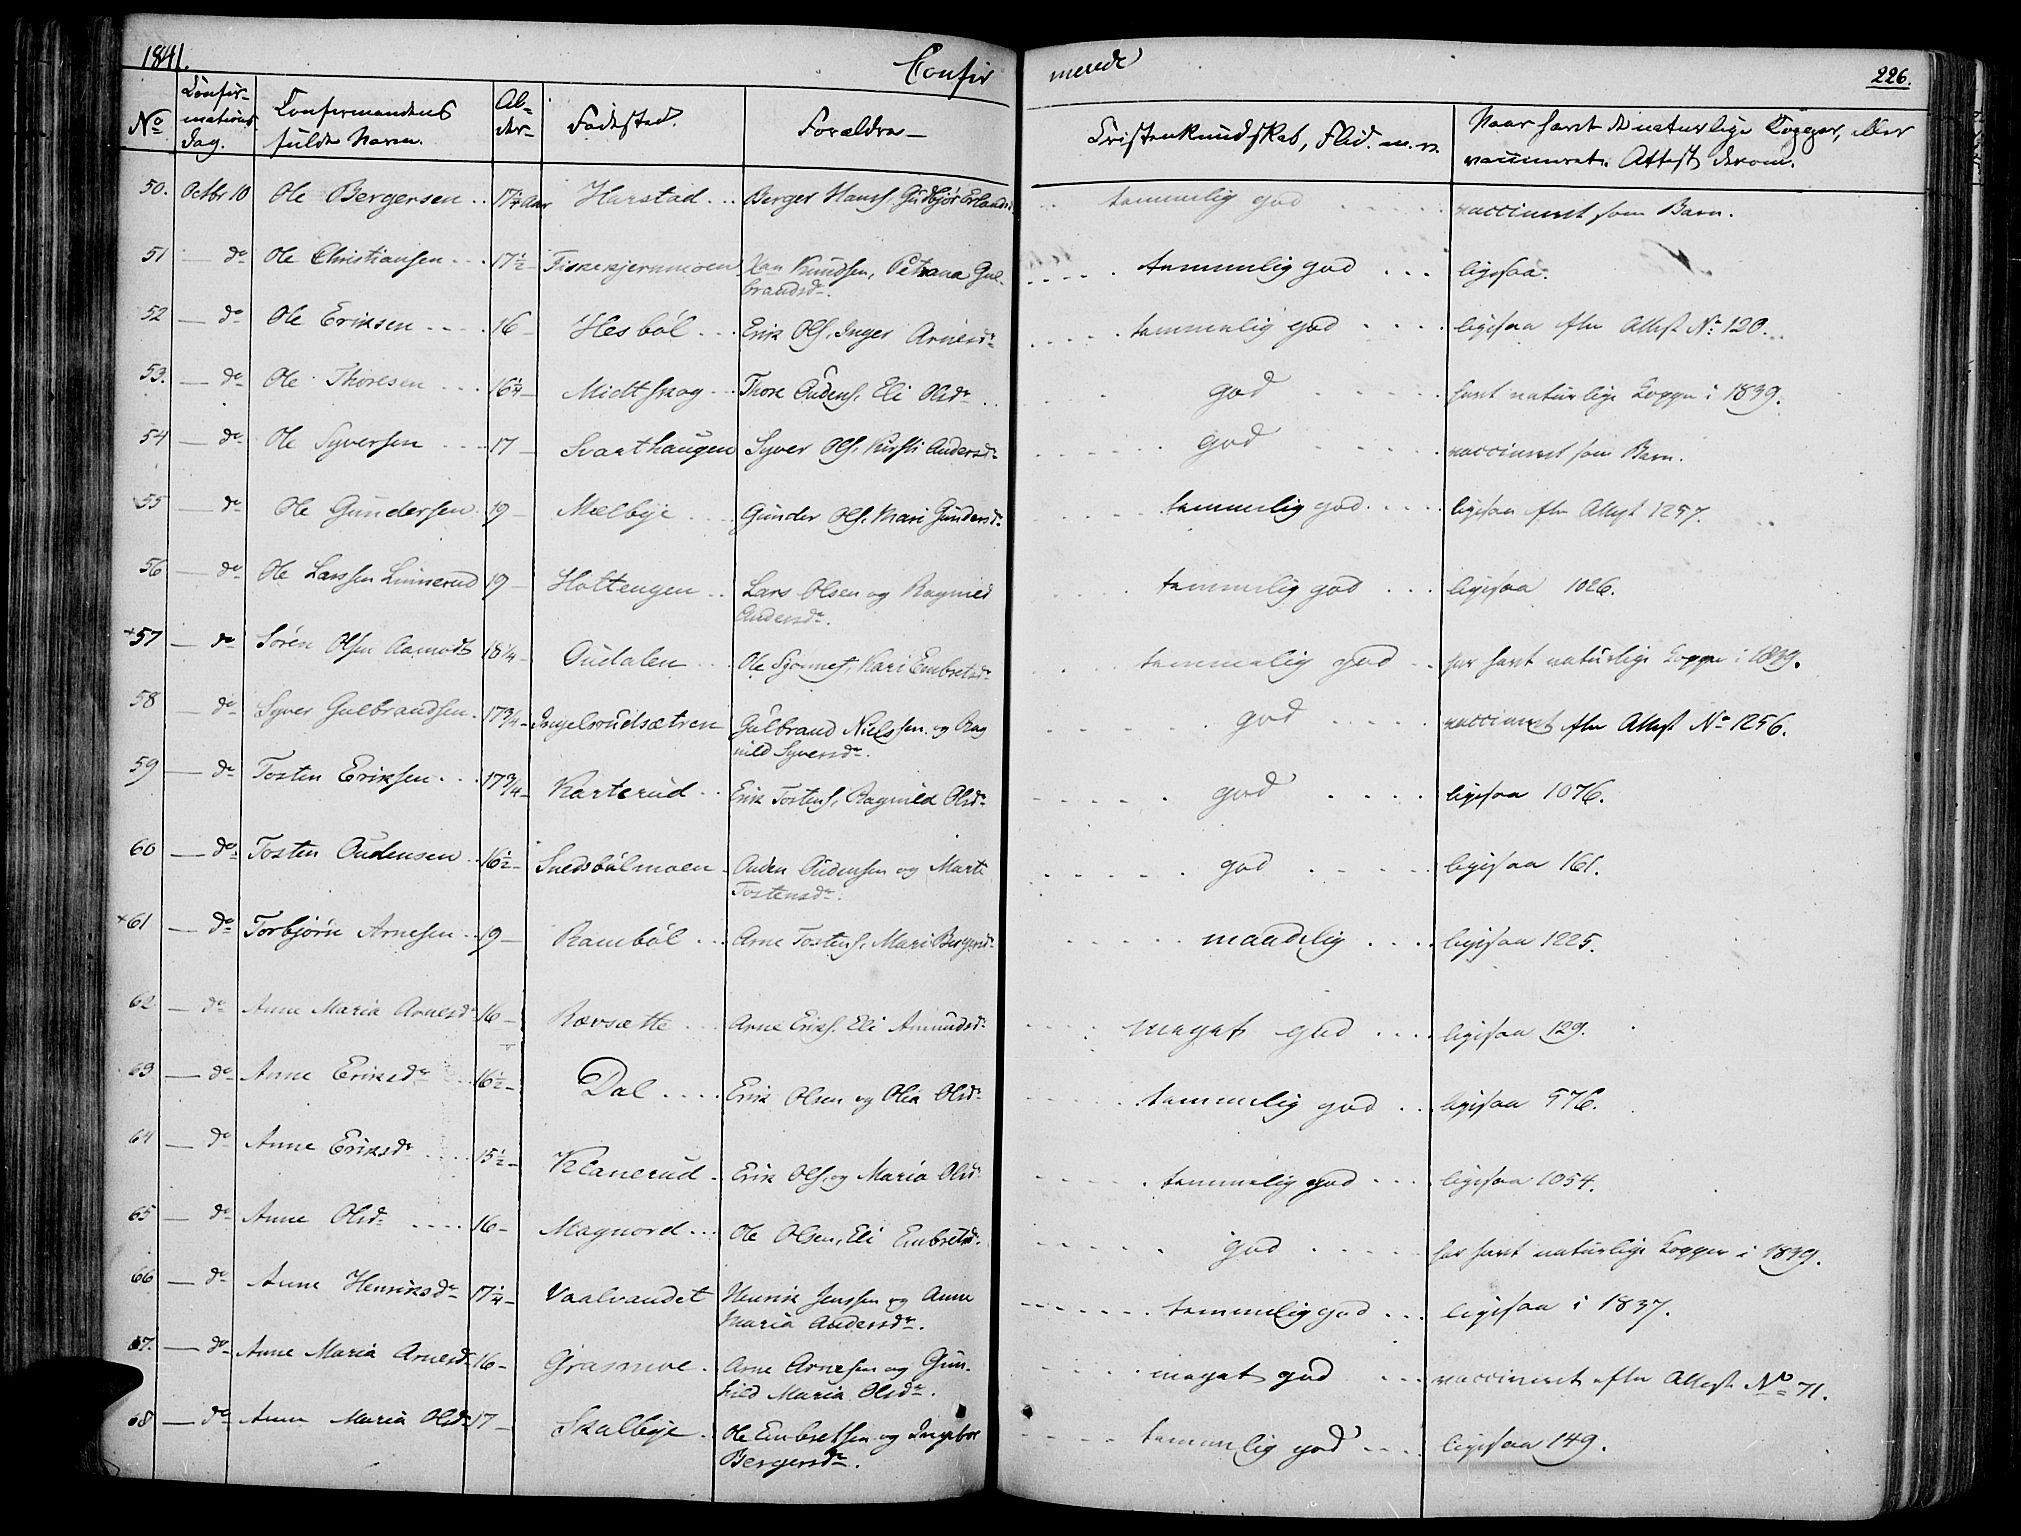 1841. Confir merede 226.
No. Confir- mations Dag. Confirmandens fulde Navn. Al- der Fødested. Forældre Cristenkundskab, Flid. m.v. Naar havt de naturlige Kopper, eller
vaccineret. Attest derom.
50. Octbr 10 Ole Bergersen 17 1/4 Aar Harstad Berger Hans. Gudbjør Erlandsd. temmelig god vaccineret som Barn.
51 — do Ole Christiansen 17 1/2 Fiskekjernmoen Knudsen, Petrana Gul-
brandsdr. temmelig god ligesaa.
52 — do Ole Eriksen 16 — Hesbøl Erik Ols. Inger Arnesdr temmelig god ligesaa efter Attest No 120.
53. — do Ole Thoresen 16 1/4 Midtskog Thore Audens. Eli Olsdr god havt naturlige Kopper i 1839.
54 — do Ole Syversen 17 — Svarthaugen Syver Ols. Kirsti Andersdr god vaccineret som Barn.
55 — do Ole Gundersen 19 — Melbye Gunder Ols. Mari Gundersdr temmelig god ligesaa efter Attest 1257.
56 — do Ole Larssen Linnerud 19 — Holtengen Lars Olsen og Ragnild
Andersdr. temmelig god ligesaa 1026.
+57 — do Søren Olsen Aamodt 18 1/4 — Oudalen Ole Kari Embretsdr temmelig god har havt naturlige Kopper i 1839.
58 — do Syver Gulbrandsen 17 3/4 — Ingelsrudsætren Gulbrand Nielssen og Rag
nild Syversdr. god vaccineret efter Attest No 1256.
59 — do Tosten Eriksen 17 3/4 — Karterud Erik Tostens. Ragnild Olsdr god ligesaa 1076.
60 — do Tosten Oudensen 16 1/2 — Snedsbølmoen Ouden Oudensen og Marte
Tostensdr. god ligesaa 161.
+61 — do Torbjørn Arnesen 19 — Rambøl Arne Tostens. Mari Bergersdr maadelig ligesaa 1225.
62 — do Anne Maria Arnesdr 16 — Rævsætte Arne Eriks. Eli Amundsdr meget god ligesaa 129.
63 — do Anne Eriksdr 16 1/2 — Dal Erik Olsen og Olea Olsdr temmelig god ligesaa 976.
64 — do Anne Eriksdr 15 1/2 — Klanerud Erik Ols. og Maria Olsd temmelig god ligesaa 1054.
65 — do Anne Olsdr 16 — Magnord Ole Olsen, Eli Embretsd. god har havt naturlige Kopper i 1839.
66 — do Anne Henriksdr 17 1/4 — Vaalvandet Henrik Jenssen og Anne
Maria Andersdr. temmelig god ligesaa i 1837.
67. — do Anne Maria Arnesdr 16 — Grasmoe Arne Arnesen og Gun-
hild Maria Olsdr. meget god vaccineret efter Attest No 71.
68 — do Anne Maria Olsdr 17 — Skalbye Ole Embretsen og Ingebor
Bergersdr. temmelig god ligesaa 149.